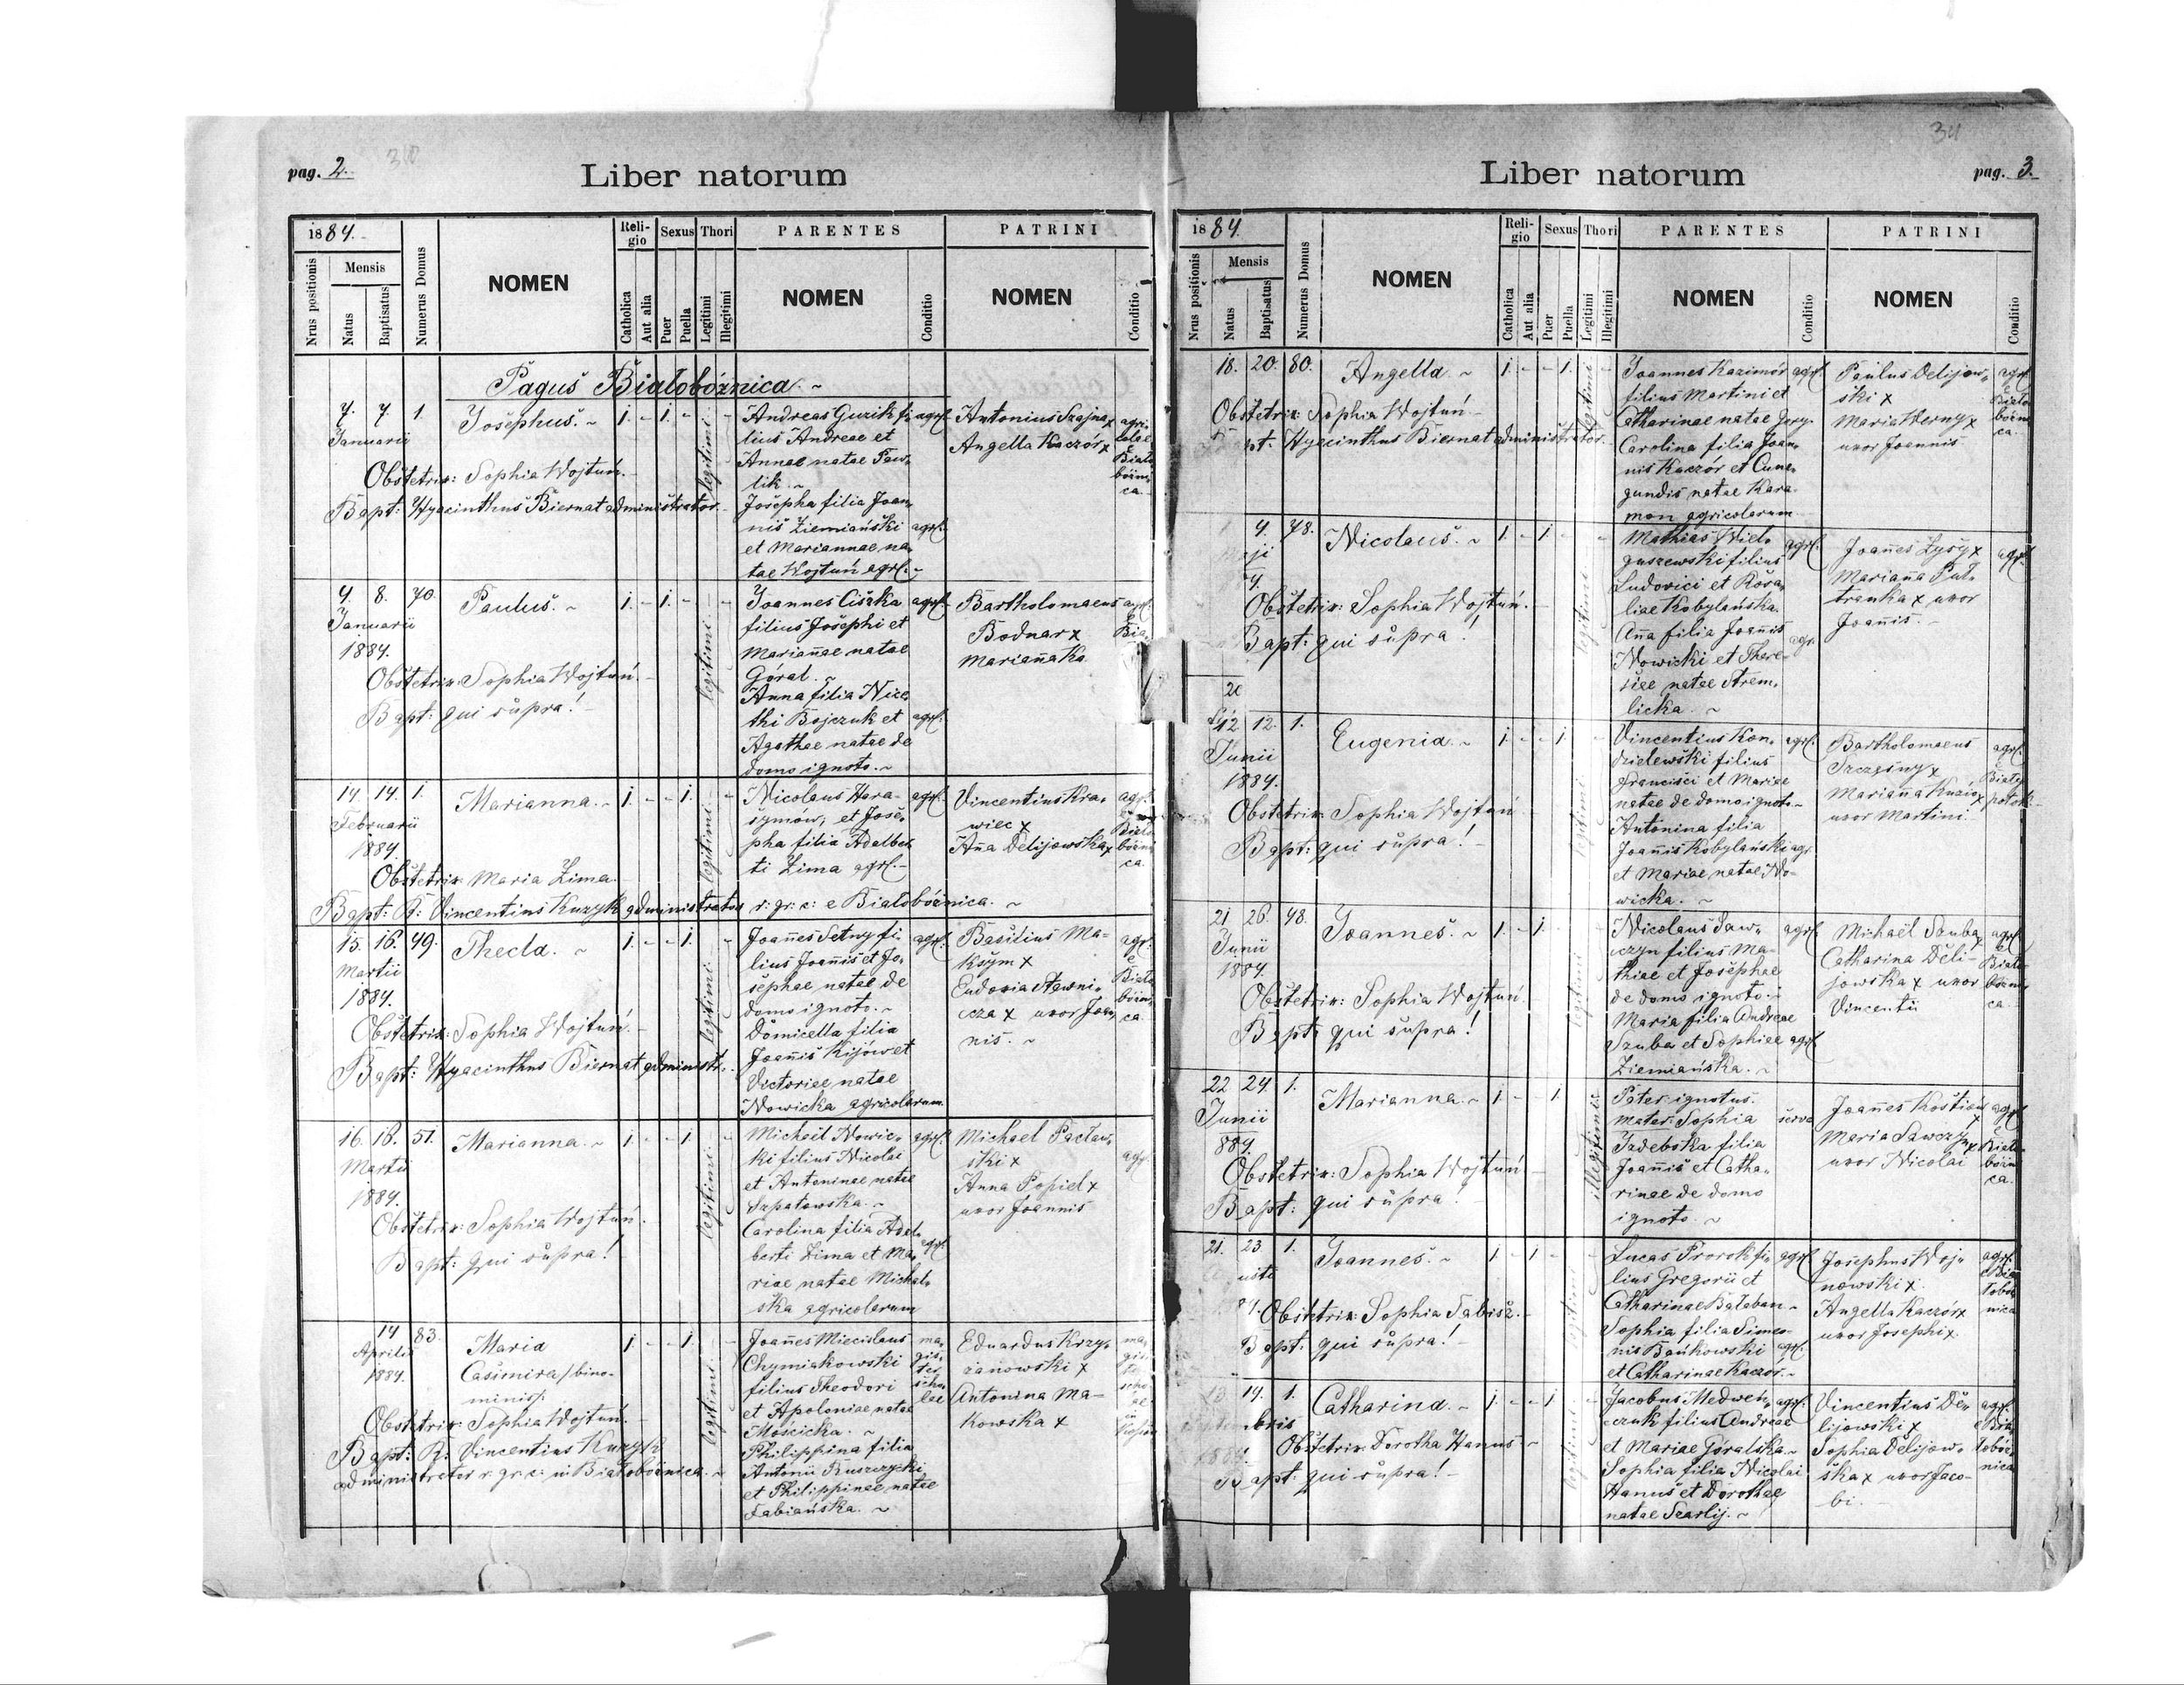 pag. 2.
Liber natorum
1884.
Nrus positionis
Mensis
Natus
Baptisatus
Numerus Domus
NOMEN
Religio
Catholica
Aut alia
Sexus
Puer
Puella
Thori
Legitimi
Illegitimi
PARENTES
NOMEN
Conditio
PATRINI
NOMEN
Conditio
Pagus Białobóżnica. ~
7. 7. 1.
Januarii
Josephus. ~
1. - 1. -
legitimi
Andreas Guzik fi- agrl.
lius Andreae et
Annae natae Paw-
lik. ~
Josepha filia Joan-
nis Ziemiański agrl.
et Mariannae na-
tae Wojtuń agrl. ~
Antonius Szajna x
Angella Kaczór x
agri-
colae
Obstetrix: Sophia Wojtuń.
Bapt: Hyacinthus Biernat administrator.
8. 70.
Januarii
1884.
Paulus. ~
1. - 1. -
legitimi
Joannes Ciszka agrl.
filius Josephi et
Mariañae natae
Góral. ~
Anna filia Nice-
thi Bojczuk et agrl.
Agathae natae de
domo ignoto. ~
Bartholomaeus
Bodnar x
Mariaña Ka
Obstetrix: Sophia Wojtuń.
Bapt: qui supra! -
14 14. 1.
Februarii
1884.
Marianna. ~
1. - - 1.
legitimi
Nicolaus Hara- agrl.
symow, et Jose-
pha filia Adalber-
ti Zima agrl. -
Vincentius Kra-
wiec x
Aña Delijowska x
Obstetrix: Maria Zima.
Bapt: R: Vincentius Kuzyk administrator r: gr: c: e Białobóżnica. ~
15. 16. 49.
Martii
1884.
Thecla. ~
1. - - 1.
legitimi
Joañes Setny fi- agrl.
lius Joañis et Jo-
sephae natae de
domo ignoto. ~
Domicella filia
Joañis Kijów et
Victoriae natae
Nowicka agricolarum.
Basilius Ma-
ksym x
x uxor Joan-
nis. ~
Obstetrix: Sophia Wojtuń. -
Bapt: Hyacinthus Biernat administr.
16. 18. 51.
Martii
1884.
Marianna. ~
1. - - 1.
legitimi
Michaël Nowic- agrl.
ki filius Nicolai
et Antoninae natae
Szpatowska. ~
Carolina filia Adal-
berti Zima et Ma- agrl.
riae natae Michal-
ska agricolarum
Michaël Pacław-
ski x
Anna Popiel x
uxor Joannis
Obstetrix: Sophia Wojtuń.
Bapt: qui supra! -
14 83.
Aprilis
1884.
Maria
Casimira /bino-
minis/.
1. - - 1.
legitimi
Joañes Miecislaus
Chymiakowski
filius Theodori
et Apoloniae natae
Mościcka. ~
Philippina filia
Antonii Ruszczycki
et Philippinae natae
Fabiańska. ~
ma-
gis-
ter
scho-
lae
Eduardus Krzy-
żanowski x
Antonina Ma-
kowska x
Obstetrix: Sophia Wojtuń.
Bapt: R: Vincentius Kuzyk
administrator r: gr: c: in Białobóżnica. ~
34
pag. 3.
Liber natorum
1884.
Nrus positionis
Mensis
Natus
Baptisatus
Numerus Domus
NOMEN
Religio
Catholica
Aut alia
Sexus
Puer
Puella
Thori
Legitimi
Illegitimi
PARENTES
NOMEN
Conditio
PATRINI
NOMEN
Conditio
18. 20. 80.
Angella. ~
1. - - 1.
legitimi
Joannes Kazimór agrl.
filius Martini et
Catharinae natae
Carolina filia Joan-
nis Kaczór et Cune-
gundis natae Kara-
mon agricolarum
Paulus Delijow-
ski x
Maria Werny x
uxor Joannis
Obstetrix: Sophia Wojtuń
pt. Hyacinthus Biernat administrator.
78.
ji
Nicolaus. ~
1. - 1.
legitimi
Mathias Wiel- agrl.
guszewski filius
Ludovici et Rosa-
liae Kobylańska.
Aña filia Joañis
Nowicki et There-
siae natae Strem-
licka. ~
Joañes Łysy x
Mariaña Pat-
tranka x uxor
Joañis. -
agrl.
Obstetrix: Sophia Wojtuń.
Bapt: qui supra!
12. 12. 1.
Junii
1884.
Eugenia. ~
1. - - 1.
legitimi
Vincentius Kon- agrl.
dzielewski filius
Francisci et Mariae
natae de domo ignoto. ~
Antonina filia
Joañis Kobylański agr.
et Mariae natae No-
wicka. ~
Bartholomaeus
Szczęsny x
Mariaña Kuzio x
uxor Martini
Obstetrix: Sophia Wojtuń
Bapt: qui supra! -
21 26. 48.
Junii
1884.
Joannes. ~
1. - 1.
legitimi
Nicolaus Saw- agrl.
czyn filius Ma-
thiae et Josephae
de domo ignoto. -
Maria filia Andreae
Szuba et Sophiae agrl.
Ziemiańska. ~
Michaël Szuba x
Catharina Deli-
jowska x uxor
Vincentii
Obstetrix: Sophia Wojtuń.
Bapt: qui supra!
22 24. 1.
Junii
884.
Marianna. ~
1. - 1.
illegitimi
Pater ignotus.
mater: Sophia serva
Izdebska filia
Joañis et Catha-
rinae de domo
ignoto. ~
Joañes Kostiów x
Maria Sawczyn x
uxor Nicolai
Obstetrix: Sophia Wojtuń
Bapt: qui supra
21. 23. 1.
usti
Joannes. ~
1. - 1. -
legitimi
Lucas Prorok fi- agrl.
lius Gregorii et
Catharinae Bałaban ~
Sophia filia Simeo-
nis Bańkowski agrl.
et Catharinae Kaczór. ~
Josephus Woj-
nowski x.
Angella Kaczór x
uxor Josephi x.
Obstetrix: Sophia Fabisz. -
Bapt: qui supra! -
14. 1.
bris
Catharina. ~
1. - - 1.
legitimi
Jacobus Medweń- agrl.
czuk filius Andreae
et Mariae Góralska ~
Sophia filia Nicolai
Hanus et Dorothae
natae Scarlij. ~
Vincentius De-
lijowski x
Sophia Delijow-
ska x uxor Jaco-
bi. -
Obstetrix: Dorotha Hanus ~
apt: qui supra! -